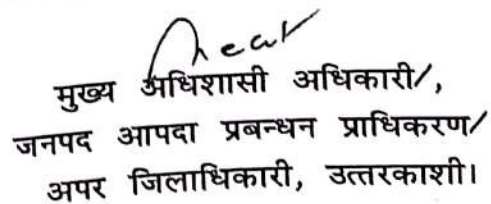 मुख्य अधिशासी अधिकारी/,
जनपद आपदा प्रबन्धन प्राधिकरण/
अपर जिलाधिकारी, उत्तरकाशी।